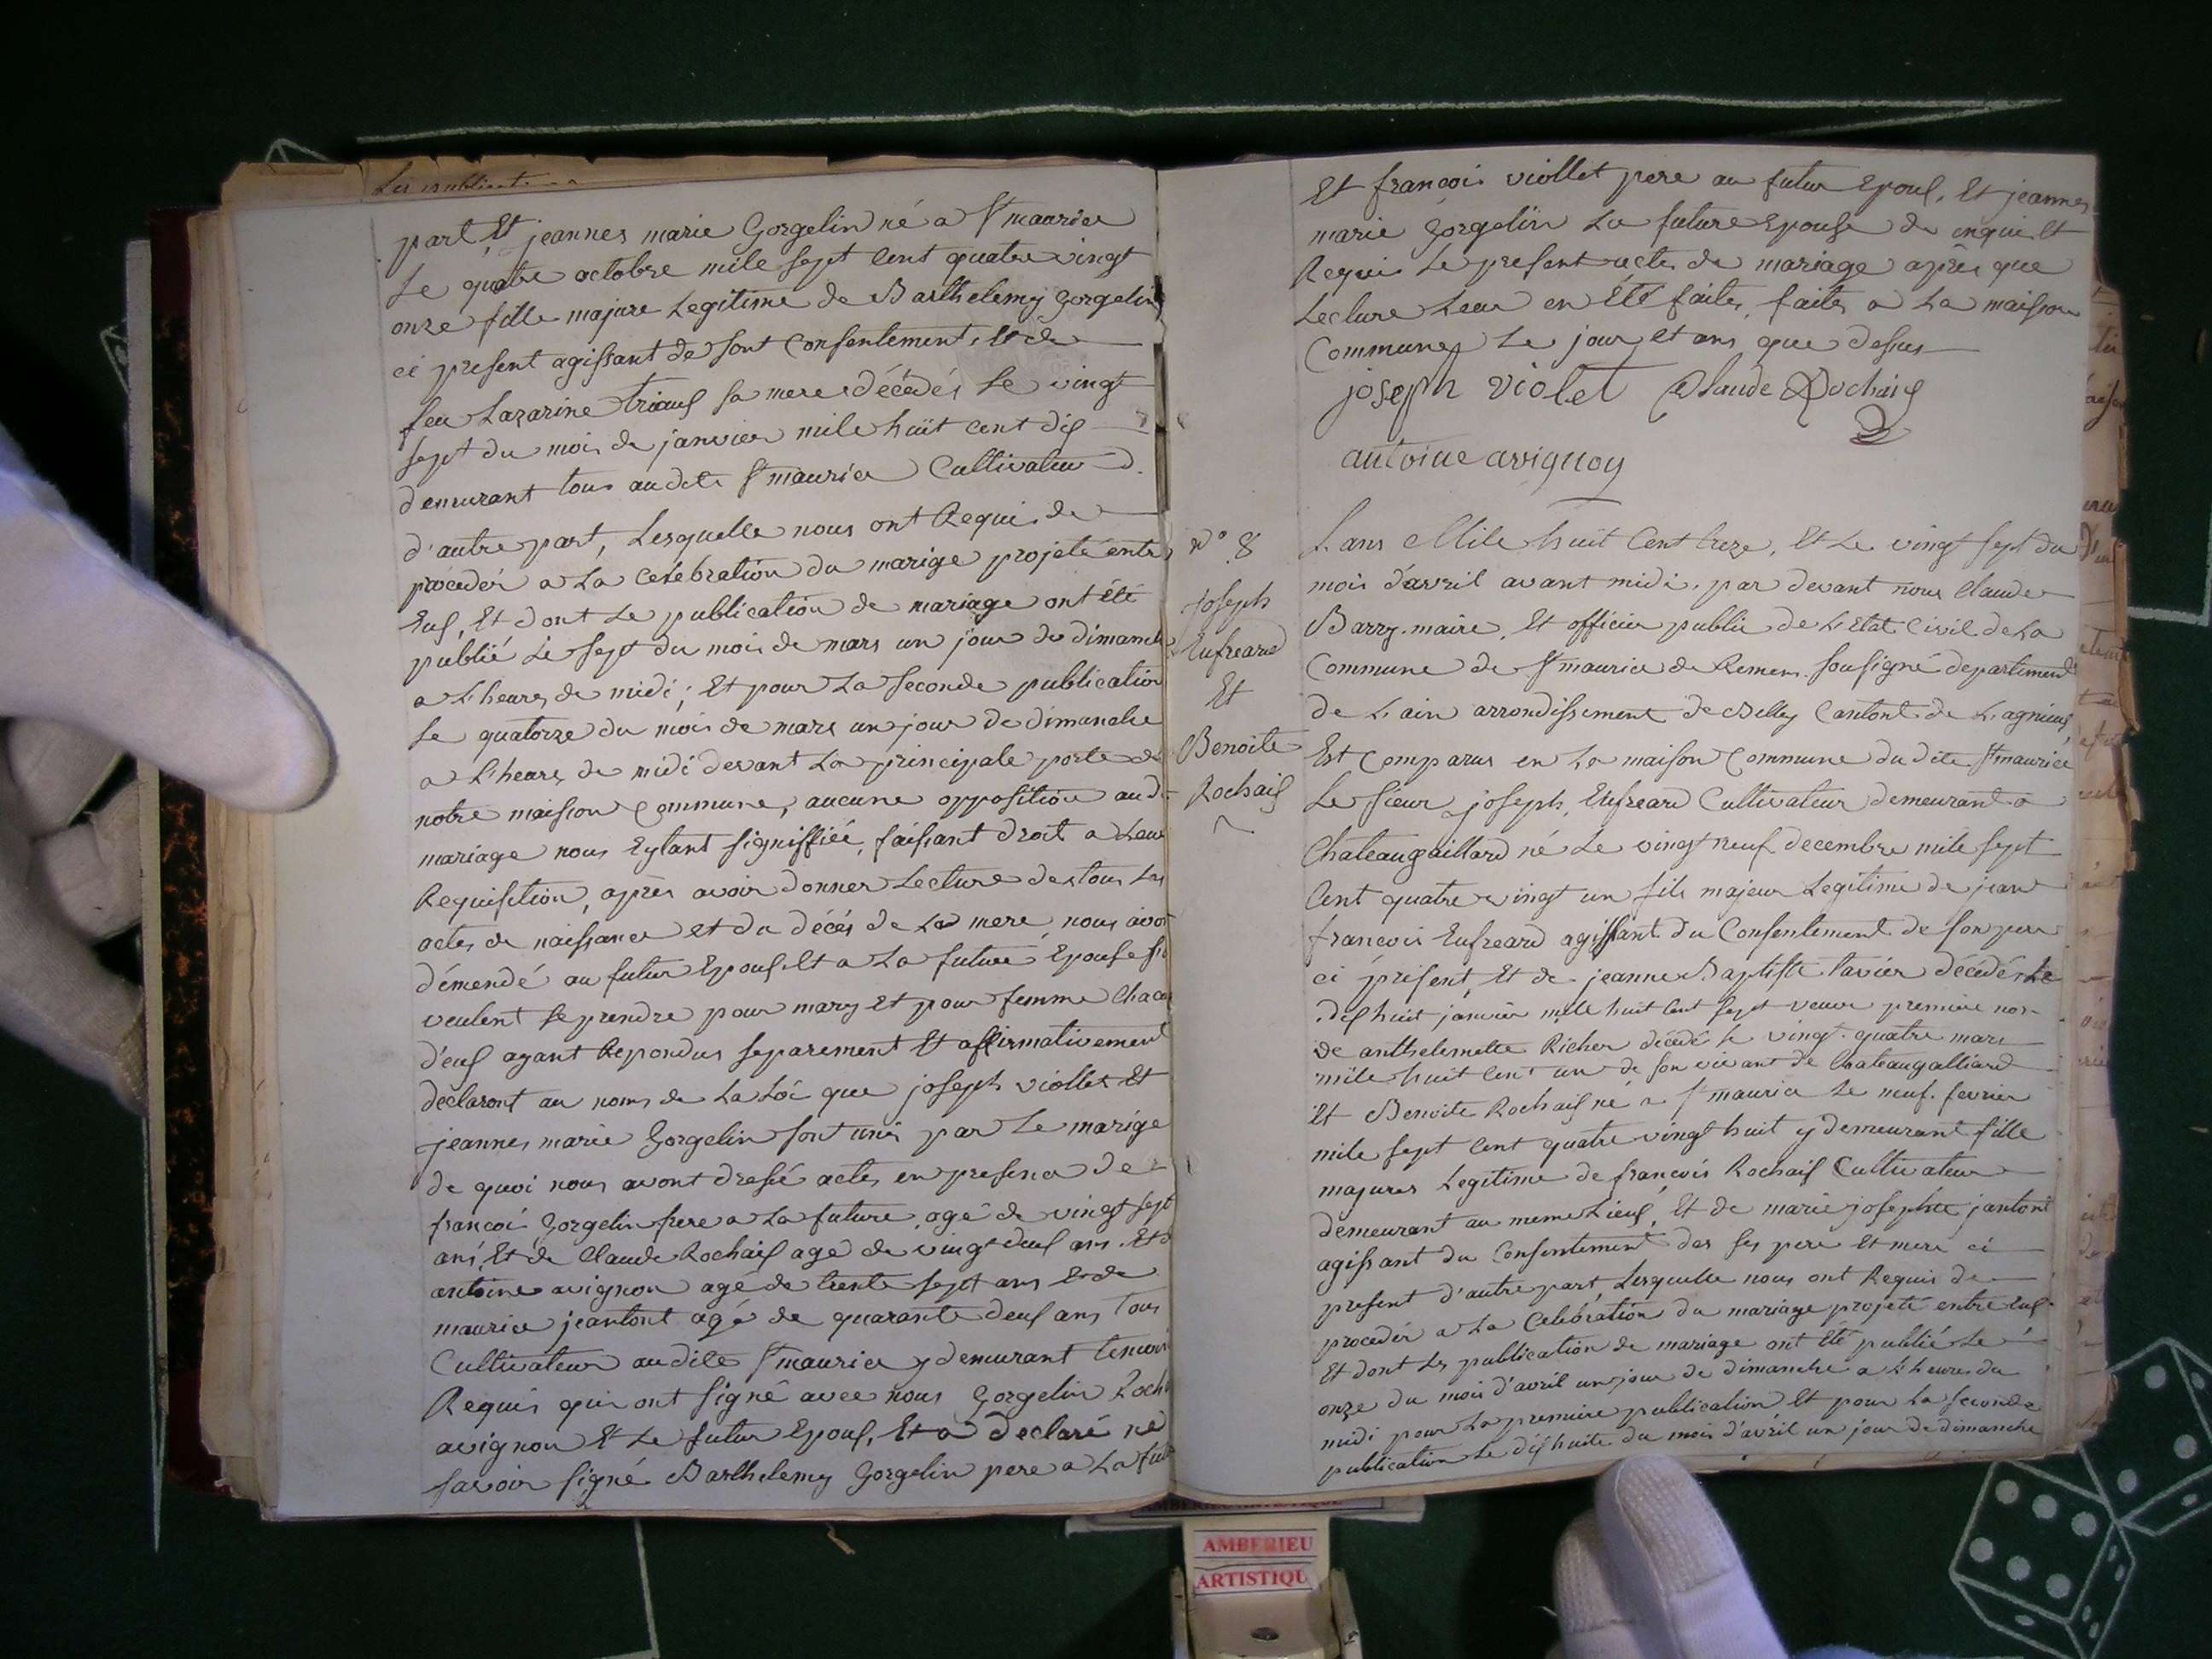 Les publicati
part, Et jeannes marie Gorgelin né a St maurice
Le quatre octobre mile sept Cent quatre vingt
onze fille majure Legitime de Barthelemy Gorgelin
ci present agissant de sont Consentement, et de
feu Lazarine triaux sa mere décédés Le vingt
sept du mois de janvier mile huit cent dix
demurant tous audite St maurice Cultivateur D.
d'autre part, Lesquelle nous ont Requis de
procéder a La celebration du marige projeté entre
Eux, Et dont Le publication de mariage ont été
publié Le sept du mois de mars un jour de dimanche
a L'heures de midi; Et pour La seconde publication
Le quatorze du mois de mars un jour de dimanche
a L'heures de midi devant La principale porte de
notre maison Commune, aucune opposition audit
mariage nous Eytant signiffiéé, faissant droit a Leur
Requisition, après avoir donner Lecture des tous Les
actes de naissance et du décés de La mere, nous avon
démendé au futur Epoux Et a La future Epouse si
veulent se prendre pour mary Et pour femme Chacun
d'eux ayant Repondus separement Et affirmativement
déclaront au noms de La Loi que joseph viollet Et
jeannes marie Gorgelin sont unis par Le marige
de quoi nous avont dressé actes en presence de
francoi Gorgelin frere a La future, agé de vingt sept
ans, Et de Claude Rochaix agé de vingt deux ans. Et d
antoine avignon agé de trente sept ans Et de
maurice jeantont agé de quarante deux ans tous
Cultivateur audite St maurice y demurant temoin
Requis qui ont signé avec nous Gorgelin Roch
avignon Et Le futur Epoux, Et a déclaré ne
savoir signé Barthelemy Gorgelin pere a La futu
Et francois viollet pere au futur Epoux, Et jeannes
marie Gorgelin La future Epouse de enquis Et
Requis Le present actes de mariage après que
Lecture Leur en Eté faites, faites a La maison
Communes Le jour et ans que dessus
joseph violet Claude Rochaix
antoine avignon
N° 8
Joseph
Eufreard
Et
Benoite
Rochaix
L'ans Mile huit Cent treze, Et Le vingt sept du
mois d'avril avant midi, par devant nous Claude
Barry maire, Et officier public de L'Etat Civil de La
Commune de St maurice de Remens sousigné departement
de L'ain arrondissement de Belley Cantont de Lagnieux,
Est Comparus en La maison Commune du dite St maurice
Le sieur joseph, Eufreard Cultivateur demeurant a
Chateaugaillard né Le vingt neuf decembre mile sept
Cent quatre vingt un fils majeur Legitime de jean
francois Eufreard agissant du Consentement de son pere
ci présent, Et de jeanne Baptiste tavier décédés Le
dix huit janvier mile huit Cent sept veuve premiere nos
de anthelemette Richer décédé le vingt-quatre mars
mile huit Cent un de son vivant de Chateaugalliard
Et Benoite Rochaix né a St maurice Le neuf fevrier
mile sept Cent quatre vingt huit y demeurant fille
majures Legitime de francois Rochaix Cultivateur
demeurant au meme Lieux, Et de marie josephte jantont
agissant du Consentement des ses pere Et mere ci
present d'autre part, Lesquelle nous ont Requis de
procedér a La Celebration du mariage projeté entre Eux
Et dont Les publication de mariage ont Eté publié Le
onze du mois d'avril un jour de dimanche a L'heures du
midi pour La premiere publication Et pour La seconde
publication Le dix huite du mois d'avril un jour de dimanche
AMBERIEU
ARTISTIQU